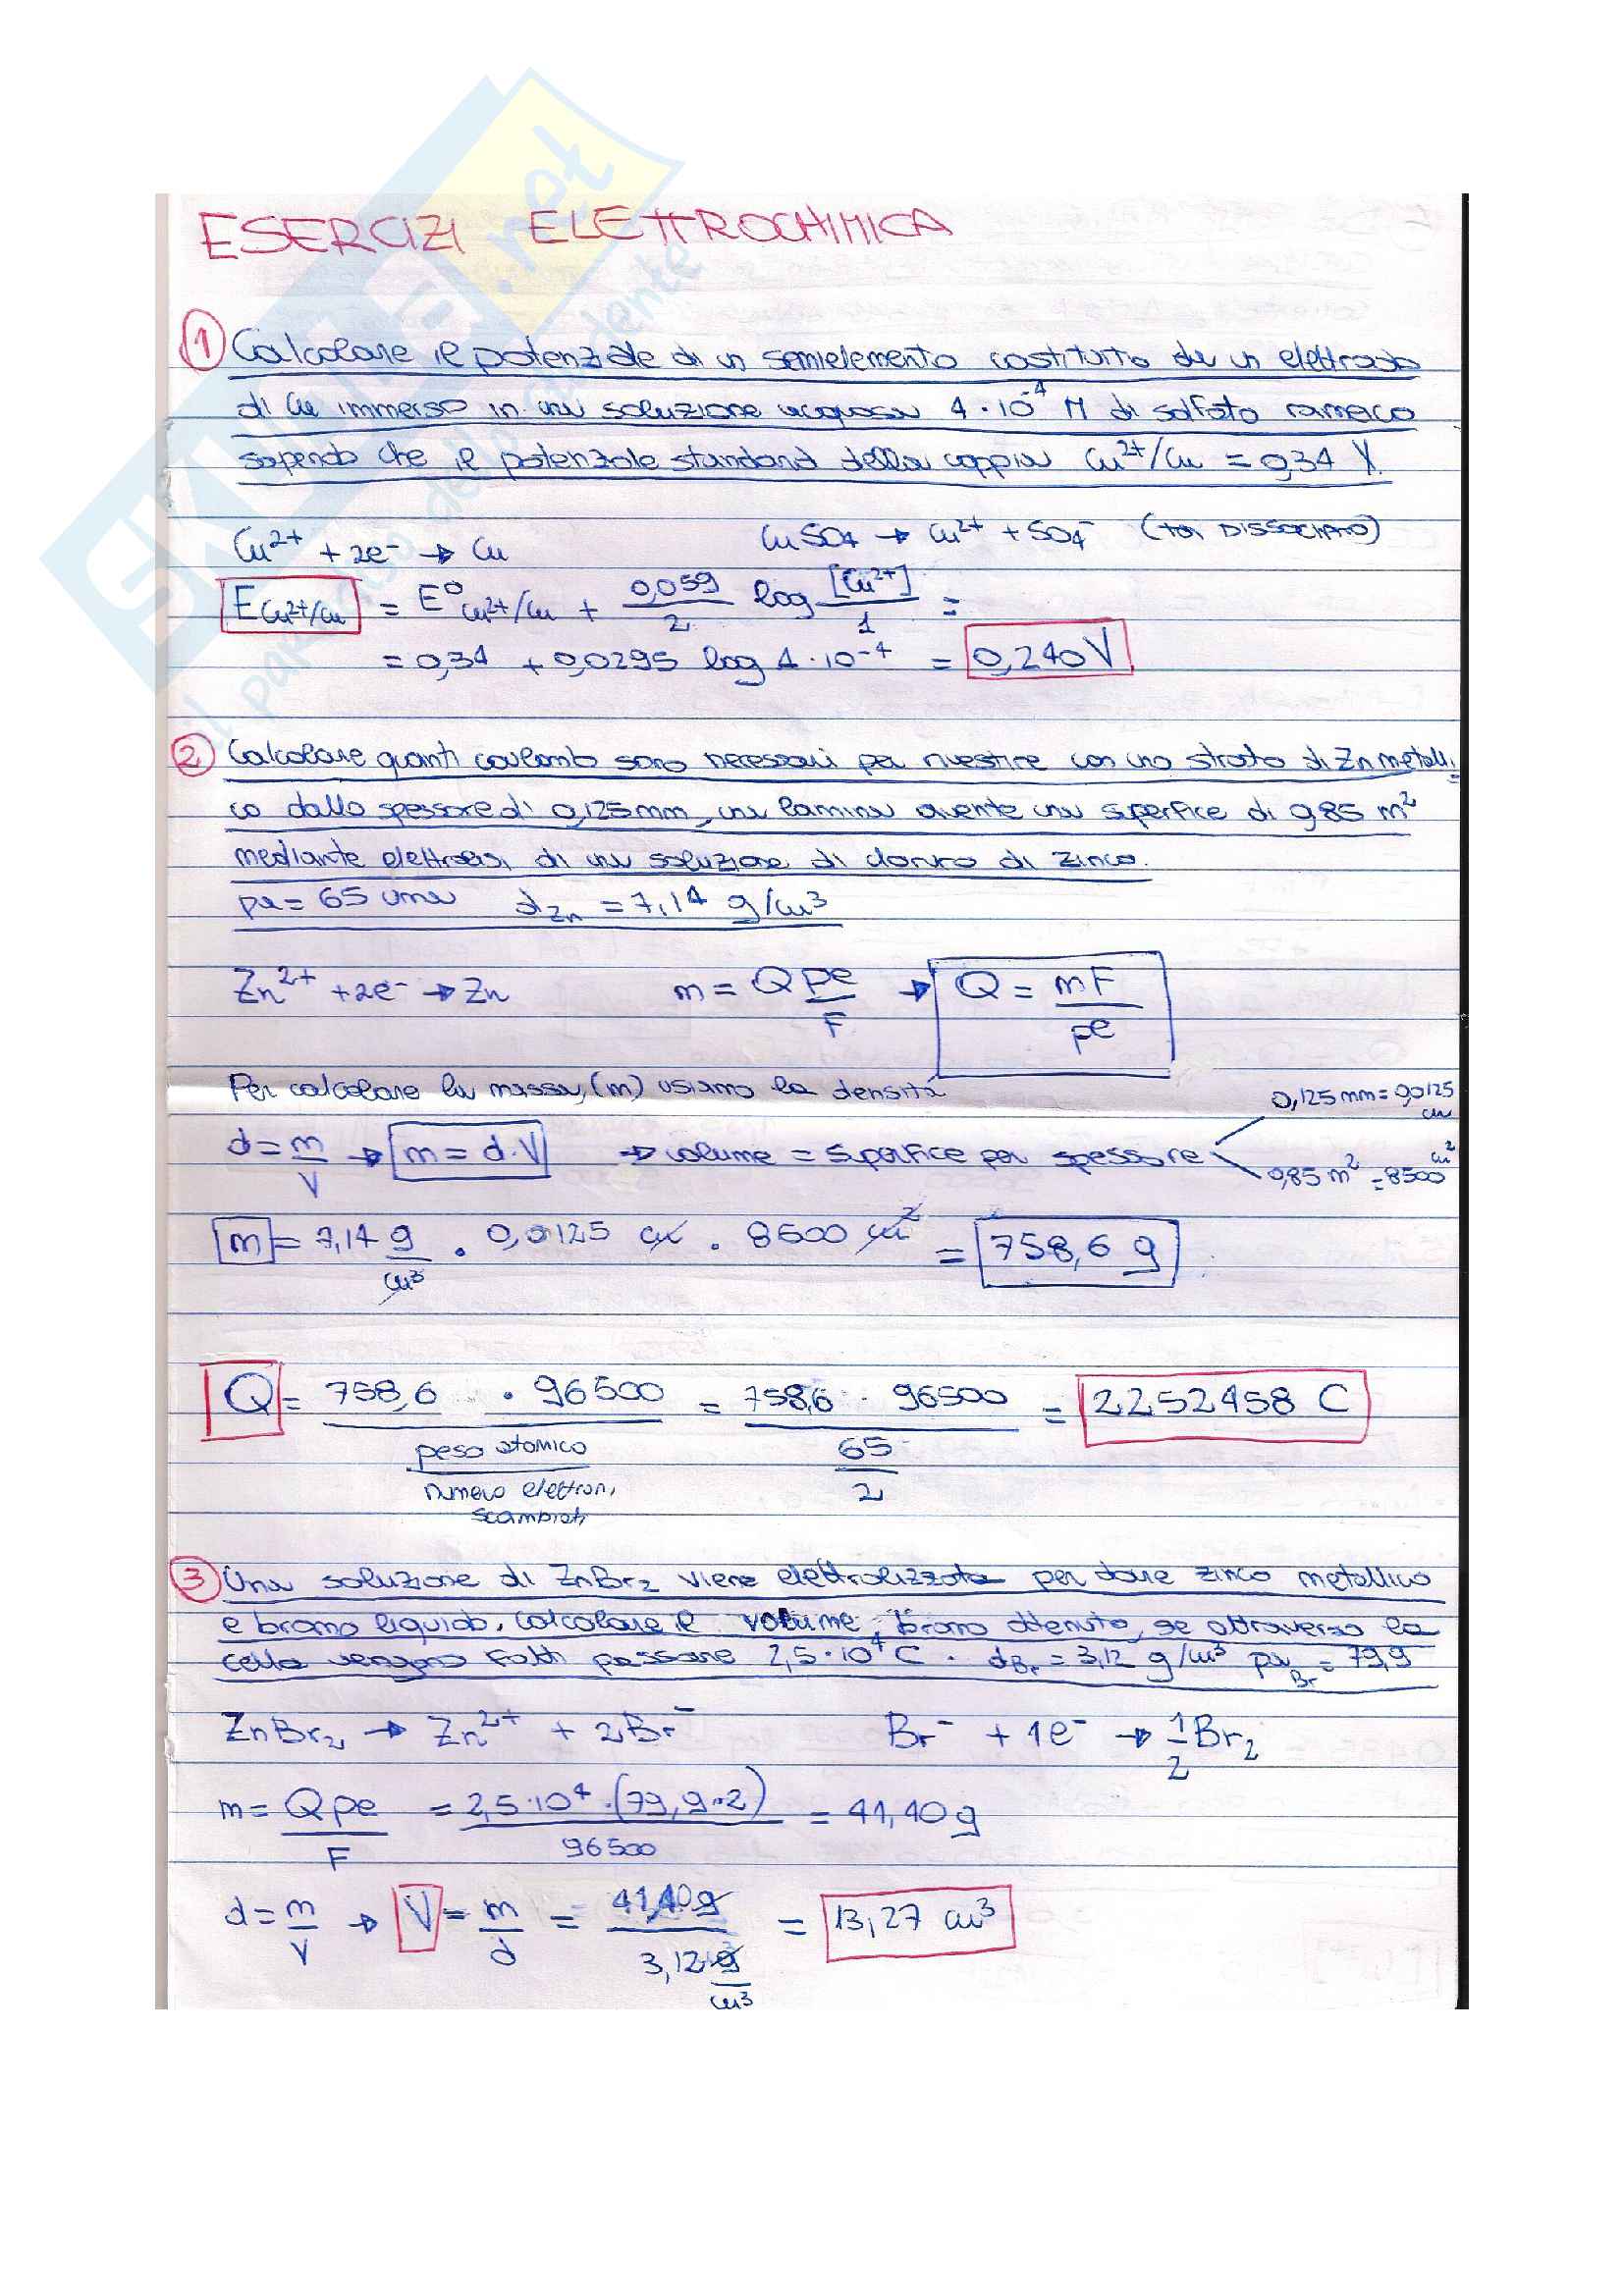 SKUOLA.net
il paradiso dello studente
ESERCIZI ELETTROCHIMICA
1 Calcolare il potenziale di un semielemento costituito da un elettrodo
di Cu immerso in una soluzione acquosa 4·10⁻⁴ M di solfato rameico
sapendo che il potenziale standard della coppia Cu²⁺/Cu = 0,34 V.
Cu²⁺ + 2e⁻ → Cu CuSO₄ → Cu²⁺ + SO₄⁻ (tot DISSOCIATO)
E Cu²⁺/Cu = E⁰ Cu²⁺/Cu + 0,059/2 log [Cu²⁺]/1 =
= 0,34 + 0,0295 log 4·10⁻⁴ = 0,240 V
2 Calcolare quanti coulomb sono necessari per rivestire con uno strato di Zn metalli-
co dallo spessore di 0,125 mm, una lamina avente una superfice di 0,85 m²
mediante elettrolisi di una soluzione di cloruro di zinco.
pa = 65 uma d Zn = 7,14 g/cm³
Zn²⁺ + 2e⁻ → Zn m = Q pe/F → Q = mF/pe
Per calcolare la massa (m) usiamo la densità
0,125 mm = 0,0125 cm
d = m/V → m = d·V → volume = superfice per spessore
0,85 m² = 8500 cm²
m = 7,14 g/cm³ · 0,0125 cm · 8500 cm² = 758,6 g
Q = 758,6 · 96500 / peso atomico / numero elettroni scambiati = 758,6 · 96500 / 65/2 = 2252458 C
3 Una soluzione di ZnBr₂ viene elettrolizzata per dare zinco metallico
e bromo liquido. Calcolare il volume, bromo ottenuto, se attraverso la
cella vengono fatti passare 2,5·10⁴ C. d Br = 3,12 g/cm³ pa Br = 79,9
ZnBr₂ → Zn²⁺ + 2Br⁻ Br⁻ + 1e⁻ → 1/2 Br₂
m = Q pe/F = 2,5·10⁴·(79,9·2)/96500 = 41,40 g
d = m/V → V = m/d = 41,40 g / 3,12 g/cm³ = 13,27 cm³